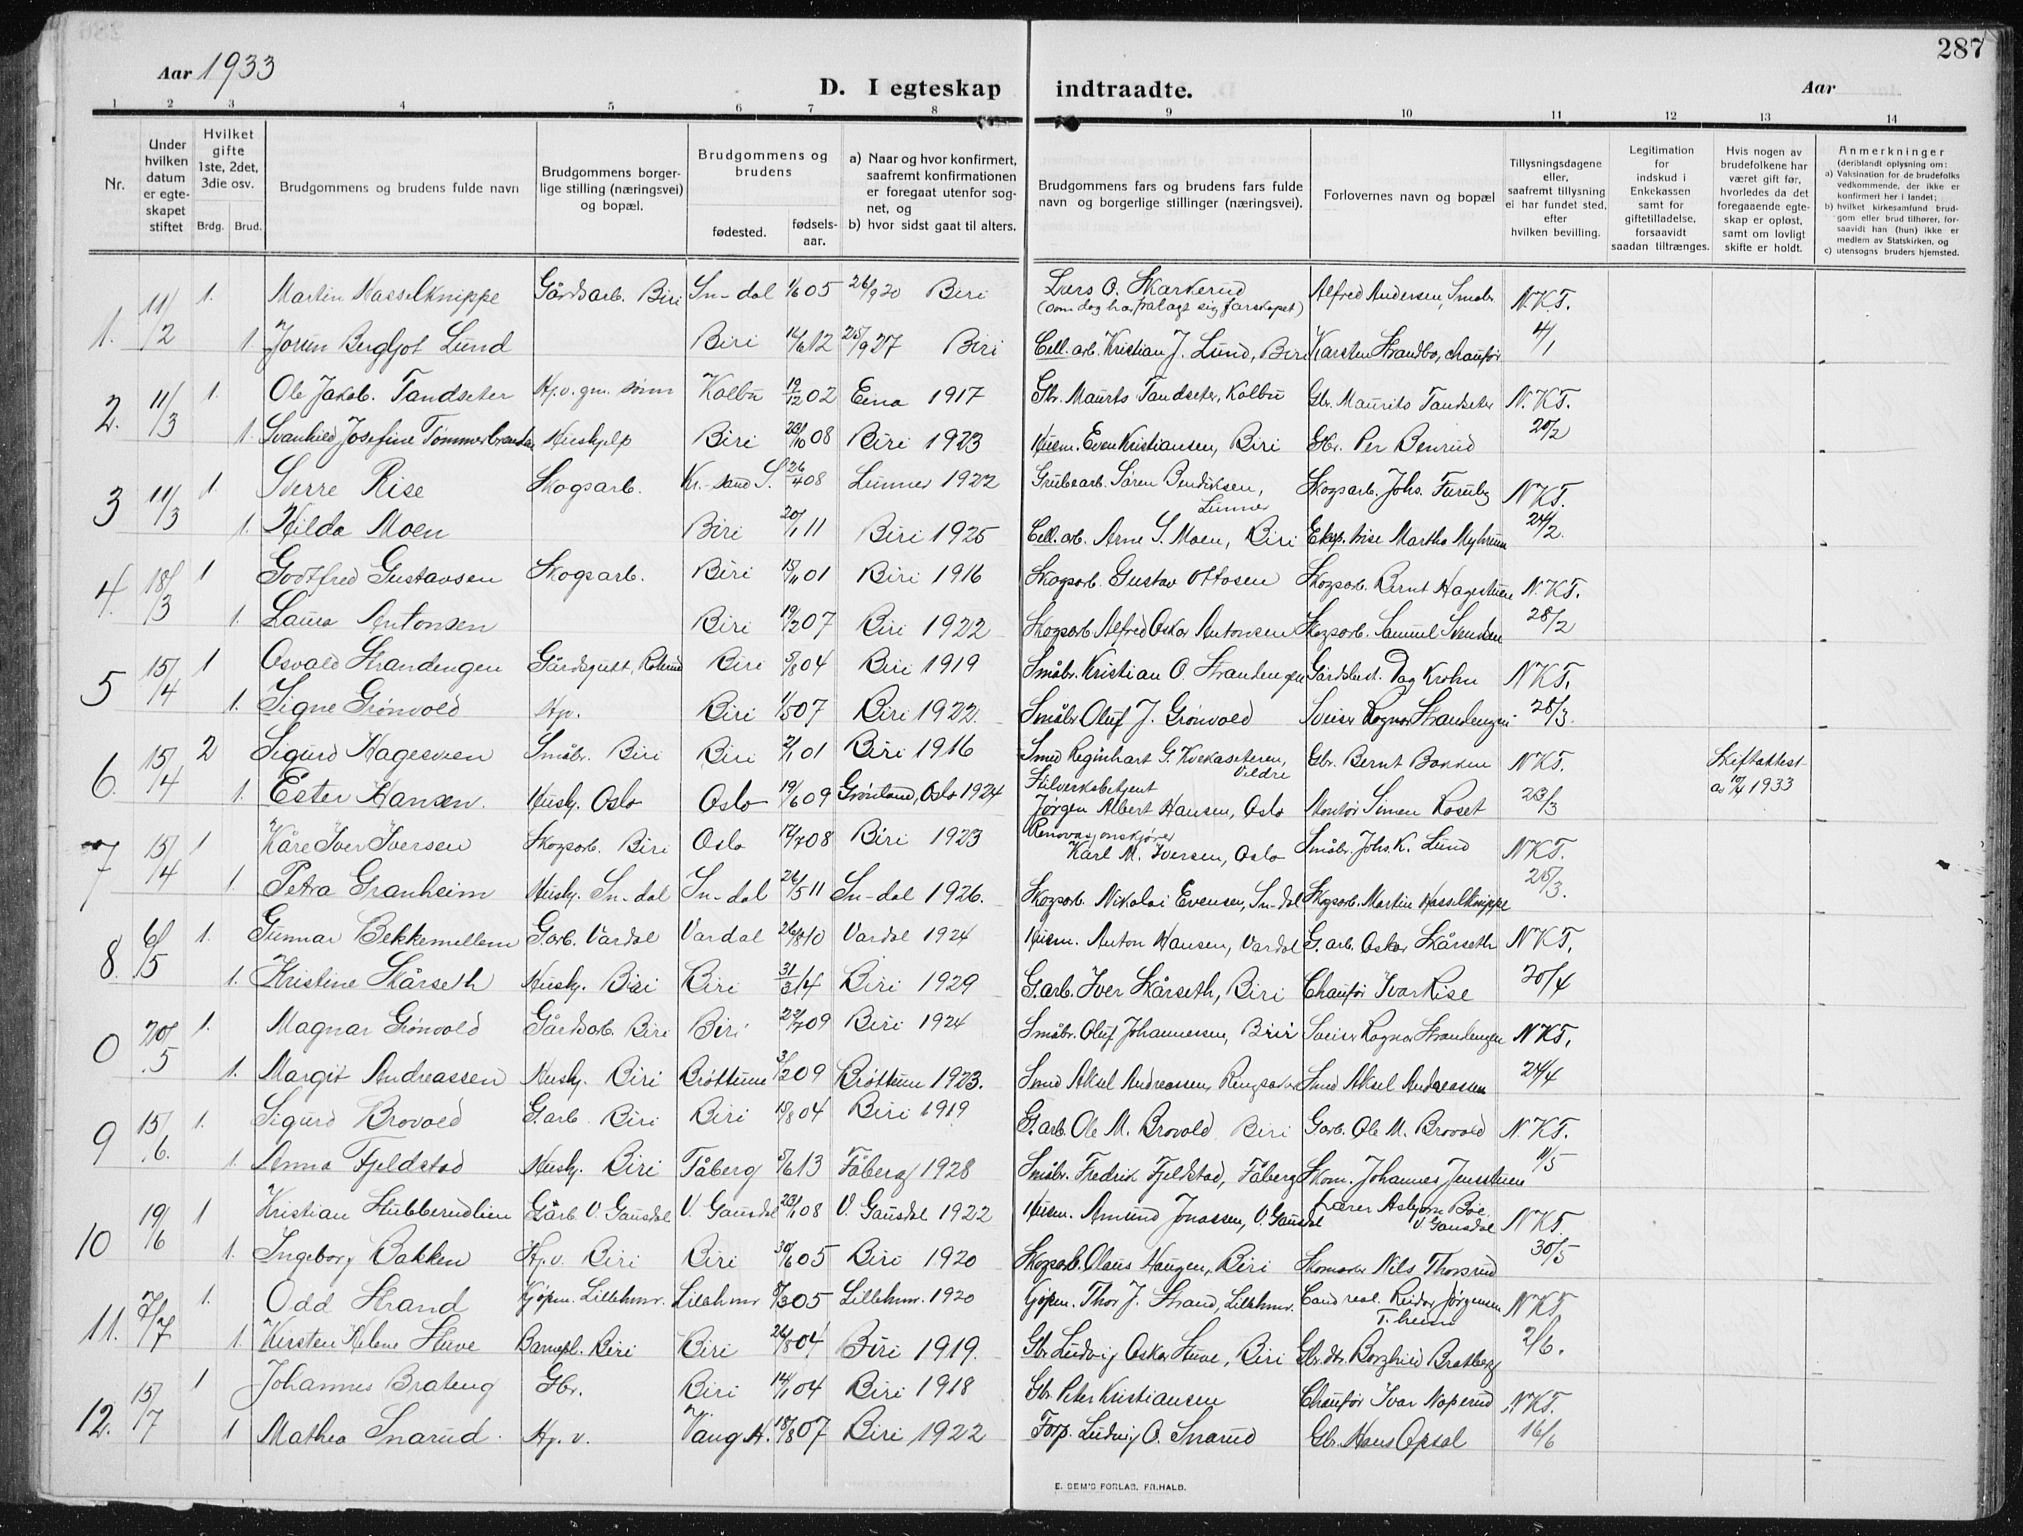 287
Aar 1933
D. I egteskap indtraadte.
Aar
1 2 3 4 5 6 7 8 9 10 11 12 13 14
Nr.
Under hvilken datum er egteskapet stiftet
Hvilket gifte 1ste, 2det, 3die osv.
Brdg. Brud.
Brudgommens og brudens fulde navn
Brudgommens borgerlige stilling (næringsvei) og bopæl.
Brudgommens og brudens
fødested. fødselsaar.
a) Naar og hvor konfirmert, saafremt konfirmationen er foregaat utenfor sognet, og
b) hvor sidst gaat til alters.
Brudgommens fars og brudens fars fulde navn og borgerlige stillinger (næringsvei).
Forlovernes navn og bopæl
Tillysningsdagene eller, saafremt tillysning ei har fundet sted, efter hvilken bevilling.
Legitimation for indskud i Enkekassen samt for giftetilladelse, forsaavidt saadan tiltrænges.
Hvis nogen av brudefolkene har været gift før, hvorledes da det foregaaende egteskap er opløst, samt om lovligt skifte er holdt.
Anmerkninger (deriblandt oplysning om:
a) Vaksination for de brudefolks vedkommende, der ikke er konfirmert her i landet;
b) hvilket kirkesamfund brudgom eller brud tilhører, forsaavidt han (hun) ikke er medlem av Statskirken, og
c) utensogns bruders hjemsted.
1. 11/2 1. Martin Hasselknippe Gårdsarb. Biri Sn-dal 1/6 05 26/9 20 Biri Lars O. Skarkerud Alfred Andersen, Småbr. N.K.T.
(som dog har fralagt sig farskapet)
1. Jorun Bergljot Lund Biri 16/6 12 25/9 27 Biri Cell. arb. Kristian J. Lund, Biri Karsten Strandbo, chaufør 4/1
2. 11/3 1. Ole Jakob Tandseter Hp.v. gm. sønn Kolbu 19/12 02 Eina 1917 Gbr. Maurits Tandseter, Kolbu Gbr. Maurits Tandseter N.K.T.
1. Svanhild Josefine Hushjelp Biri 08 Biri 1923 Husm. Even Kristiansen, Biri Gbr. Per Benrud 20/2
3 11/3 1 Sverre Rise Skogsarb. Kr.-sand S. 26/4 08 Lunner 1922 Grubearb. Søren Bendiksen, Lunner Skogsarb. Johs. Furuby N.K.T.
1. Hilda Moen Biri 20/1 11 Biri 1925 Cell. arb. Arne S. Moen, Biri Eksp. trise Martha Myhrum 24/2.
4. 18/3 1 Godtfred Gustavsen Skogsarb. Biri 15/11 01 Biri 1916 Skogsarb. Gustav Ottosen Skogsarb. Bernt Hagestuen N.K.T.
1. Laura Antonsen Biri 19/2 07 Biri 1922 Skogsarb. Alfred Oskar Antonsen Skogsarb. Samuel Svendsen 28/2
5 15/4 1 Osvald Strandengen Gårdsgutt, Biri 5/8 04 Biri 1919 Småbr. Kristian O. Strandengen Gårdsbest. Dag Krohn N.K.T.
1. Signe Grönvold Hp. Biri 1/5 07 Biri 1922. Småbr. Oluf J. Grönvold Sveiser Ragnar Strandengen 28/3.
6. 15/4 2 Sigurd Hagesveen Småbr. Biri Biri 2/1 01 Biri 1916 Smed Reginhart G. Kvekaseteren, Veldre Gbr. Bernt Bakken N.K.T. Skifteattest av 10/4 1933
1. Ester Hansen Hushj. Oslo Oslo 19/6 09 Grönland, Oslo 1924 Jørgen Albert Hansen, Oslo Montør Simen Roset 23/3
7 15/4 1 Kåre Iver Iversen Skogsarb. Biri Oslo 17/7 08 Biri 1923 Renovasjonskjører Karl M. Iversen, Oslo Småbr. Johs. K. Lund N.K.T.
1. Petra Granheim Hushj. Sn-dal Sn-dal 26/5 11 Sn-dal 1926. Skogsarb. Nikolai Evensen, Sn-dal Skogsarb. Martin Hasselknippe 25/3.
8. 6/5 1. Gunnar Bekkemellem G.arb. Vardal Vardal 26/8 10 Vardal 1924 Husm. Anton Hansen, Vardal G. arb. Oskar Skårseth N.K.T.
1. Kristine Skårseth Hushj. Biri Biri 31/3 14 Biri 1929 G.arb. Iver Skårseth, Biri Chaufør Ivar Rise 20/4
0 20/5 1. Magnar Grönvold Gårdsarb. Biri Biri 22/7 09 Biri 1924 Småbr. Oluf Johannessen, Biri Sveiser Ragnar Strandengen N.K.T.
1. Margit Andreassen Hushj. Biri Brøttum 3/2 09 Brøttum 1923. Smed Aksel Andreassen, Ringsaker Smed Aksel Andreassen 24/4
9 15/6. 1. Sigurd Brovold G.arb. Biri Biri 15/8 04 Biri 1919 G.arb. Ole M. Brovold Biri G.arb. Ole M. Brovold N.K.T.
1. Anna Fjeldstad Hushj. Biri Fåberg 5/6 13 Fåberg 1928 Småbr. Fredrik Fjeldstad, Fåberg Skom. Johannes Jensstuen 11/5
10 19/6 1 Kristian Stubberudlien Gårb. V. Gausdal V. Gausdal 23/1 08 V. Gausdal 1922 Husm. Amund Jonassen, V. Gausdal Lærer Asbjørn Bøe V. Gausdal N.K.T.
1. Ingeborg Bakken Hp.v. Biri Biri 30/6 05 Biri 1920 Skogsarb. Olaus Haugen, Biri Skomaker Nils Thorsrud 30/5
11. 7/7 1. Odd Strand Kjøpm. Lillehmr. Lillehmr 8/3 05 Lillehmr. 1920 Kjøpm. Thor J. Strand, Lillehmr. Cand real. Reidar Jørgensen T.heim N.K.T.
1. Kirsten Helene Stuve Barnepl. Biri Biri 26/8 04 Biri 1919. Gbr. Ludvig Oskar Stuve, Biri Gbr.dtr. Borghild Bratberg 2/6.
12. 15/7 1 Johannes Brateng Gbr. Biri 14/1 04 Biri 1918 Gbr. Peter Kristiansen Chaufør Ivar Naperud N.K.T.
1 Mathea Snarud Hp.v. Vang H. 18/8 07 Biri 1922 Forp. Ludvig O. Snarud Gbr. Hans Opsal 16/6
E. SEM'S FORLAG, FR.HALD.